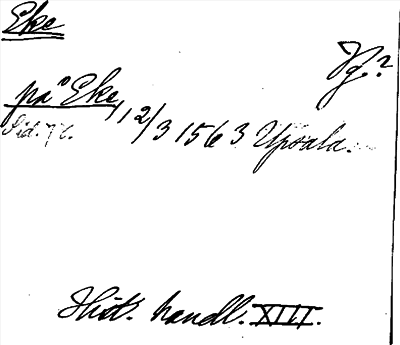 Eke
Jg?
på Eke, 12/3 1563 Upsala.
Sid. 76.
Hist. handl. XIII.